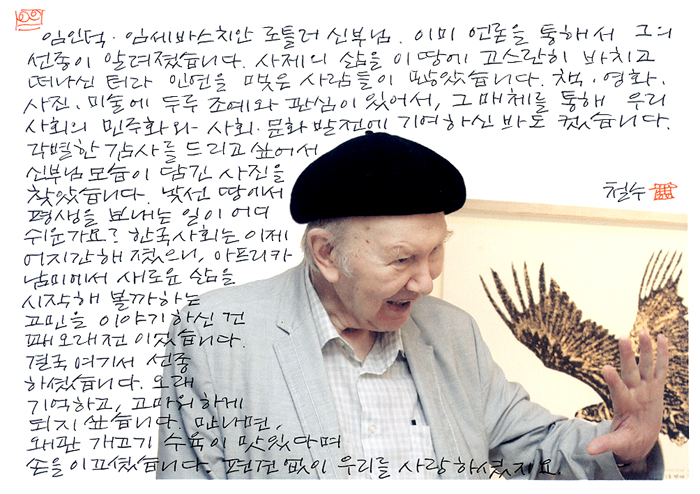 임인덕·임세바스치안 로틀러 신부님. 이미 언론을 통해서 그의
선종이 알려졌습니다. 사제의 삶을 이 땅에 고스란히 바치고
떠나신 터라 인연을 맺은 사람들이 많았습니다. 책·영화·
사진·미술에 두루 조예와 관심이 있어서, 그 매체를 통해 우리
사회의 민주화와 사회·문화 발전에 기여하신 바도 컸습니다.
각별한 감사를 드리고 싶어서
신부님 모습이 담긴 사진을
찾았습니다. 낯선 땅에서
평생을 보내는 일이 어디
쉬운가요? 한국사회는 이제
어지간해 졌으니, 아프리카
남미에서 새로운 삶을
시작해 볼까하는
고민을 이야기하신 건
꽤 오래전 이었습니다.
결국 여기서 선종
하셨습니다. 오래
기억하고, 고마워하게
되지 싶습니다. 만나면,
왜관 개고기 수육이 맛있다며
손을 이끄셨습니다. 편견 없이 우리를 사랑하셨지요.
철수